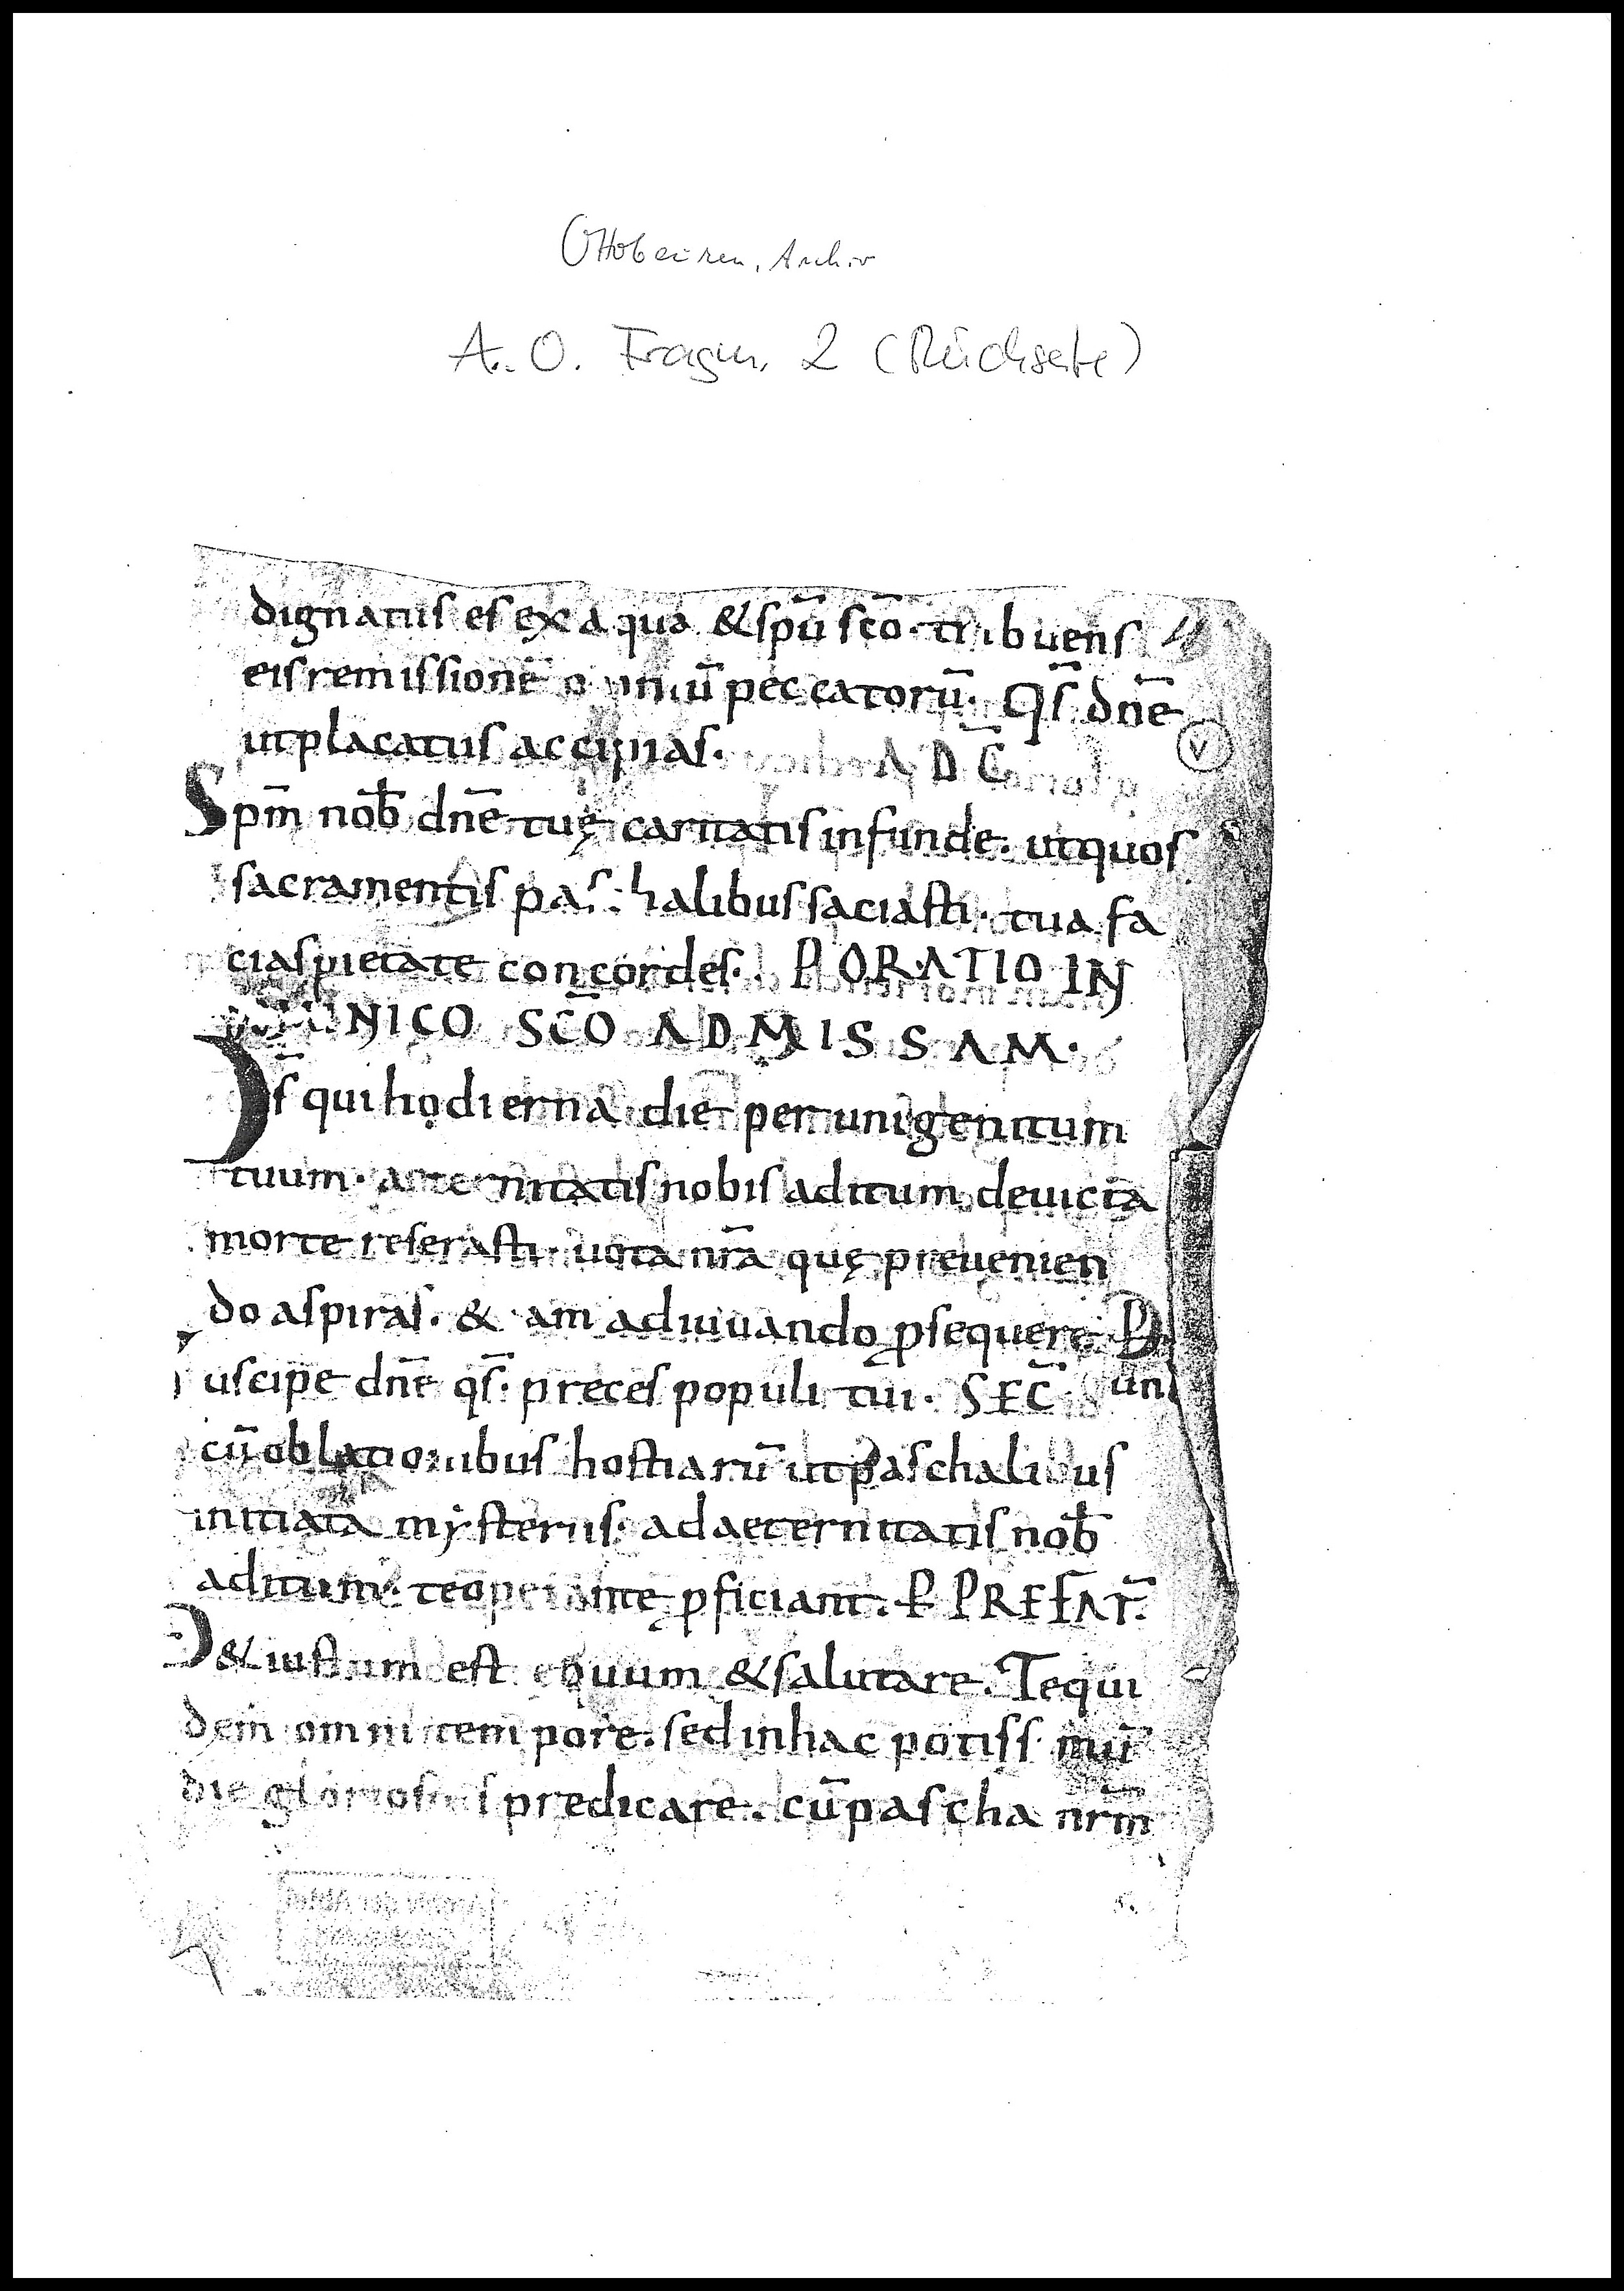 Ottobeuren, Archiv
A. O. Fragm. 2 (Rückseite)
dignatus es ex aqua & spū sc̄o · tribuens
eis remissionē omniū peccatorū · Qs̄ dn̄e
ut placatus accipias · AD C̄
Spm̄ nob̄ dn̄e tuę caritatis infunde · ut quos
sacramentis paschalibus saciasti · tua fa
cias pietate concordes · P ORATIO IN
NICO SC̄O AD MISSAM ·
Ds̄ qui hodierna die per unigenitum
tuum · aeternitatis nobis aditum deuicta
morte reserasti · uota nr̄a quę preuenien
do aspiras · & iam adiuuando ꝓsequere P
uscipe dn̄e qs̄ · preces populi tui · SEC̄
cū oblationibus hostiarū ut paschalibus
initiata mysteriis · ad aeternitatis nob̄
aditum · te operante ꝓficiant · P PREFAT̄
D & iustum est equum & salutare · Te qui
dem omni tempore · sed in hac potissimū
die gloriosius predicare · cū pascha nr̄m
V